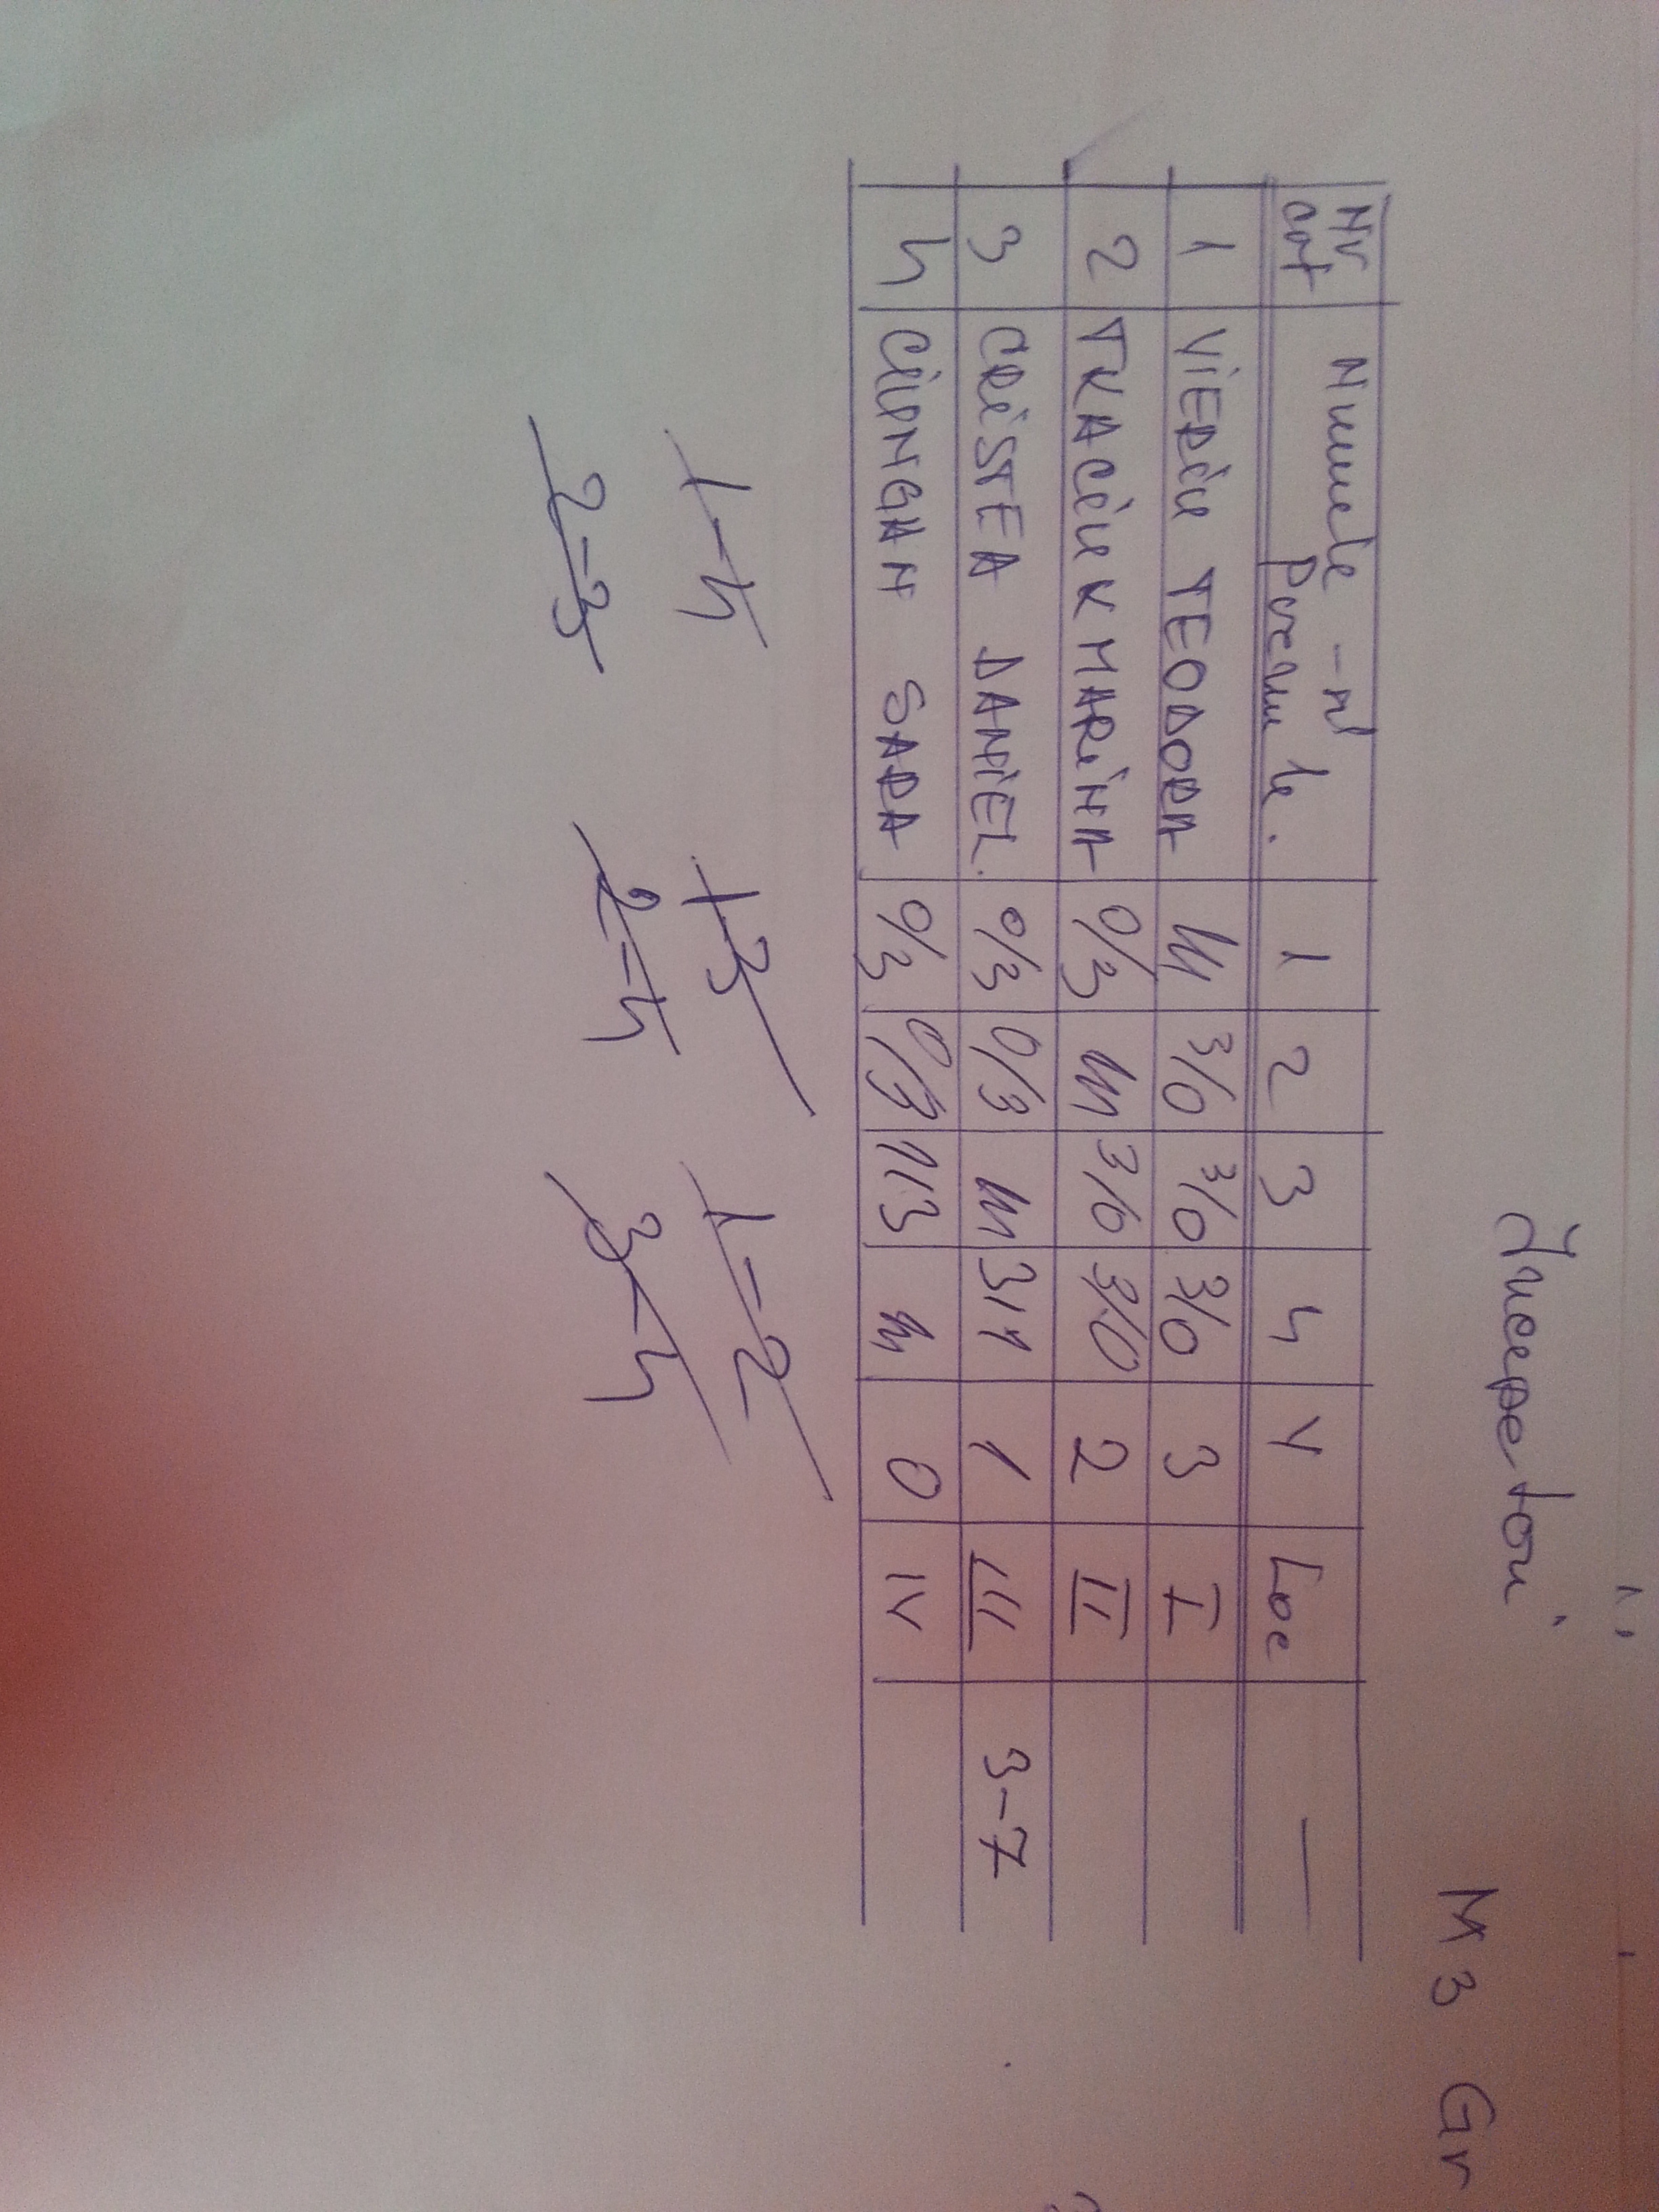 Începători M 3 Gr
Nr Numele -n'
crt Prenumele. 1 2 3 4 V Loc —
1 VIERIU TEODORA 3/0 3/0 3/0 3 I
2 TKACIUK MARINA 0/3 3/0 3/0 2 II
3 CRISTEA DANIEL. 0/3 0/3 3/1 1 III 3-7
4 CIUNGAN SARA 0/3 0/3 1/3 0 IV
1-4 1-3 1-2
2-3 2-4 3-4